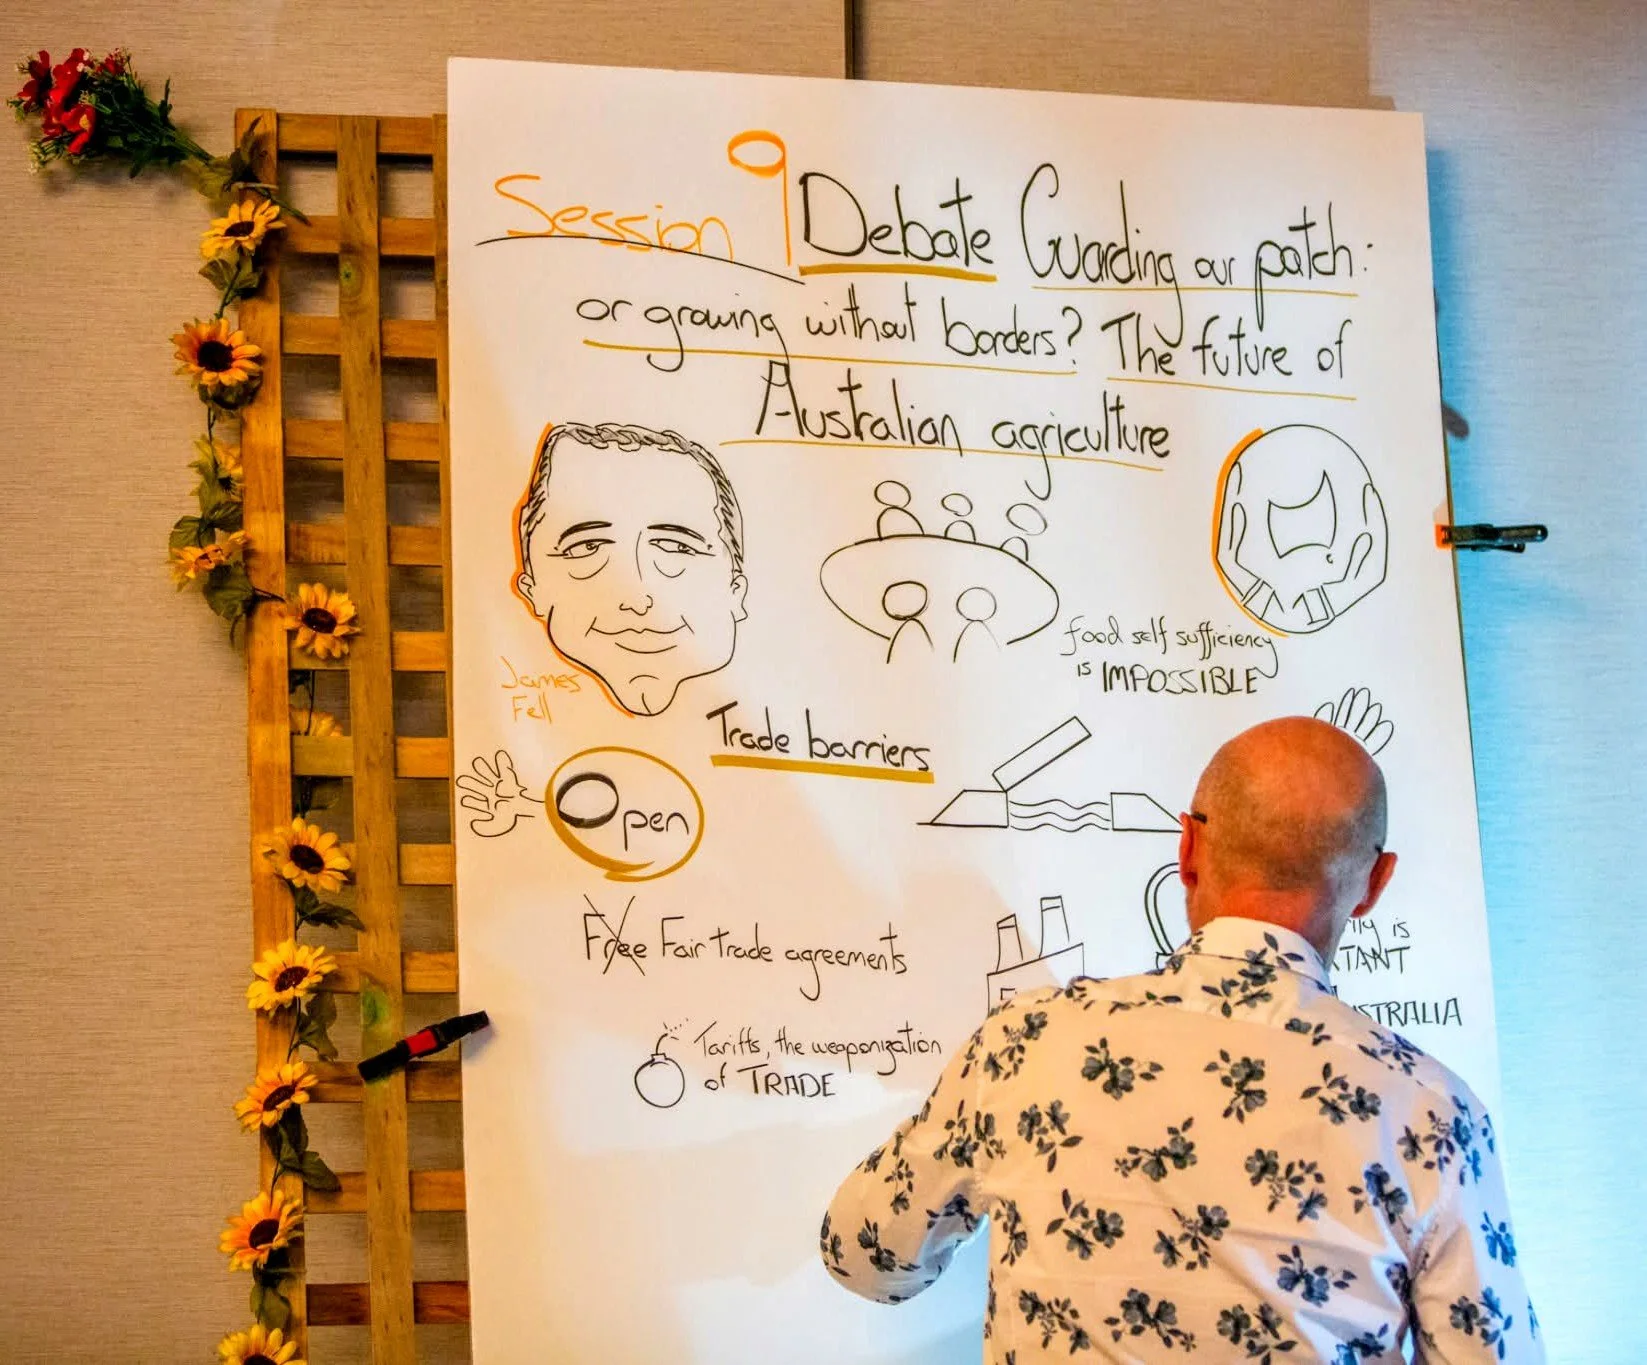 Session 9 Debate Guarding our patch:
or growing without borders? The future of
Australian agriculture
James
Fell
food self sufficiency
is IMPOSSIBLE
Trade barriers
Open
Free Fair trade agreements
is
Tariffs, the weaponization
of TRADE